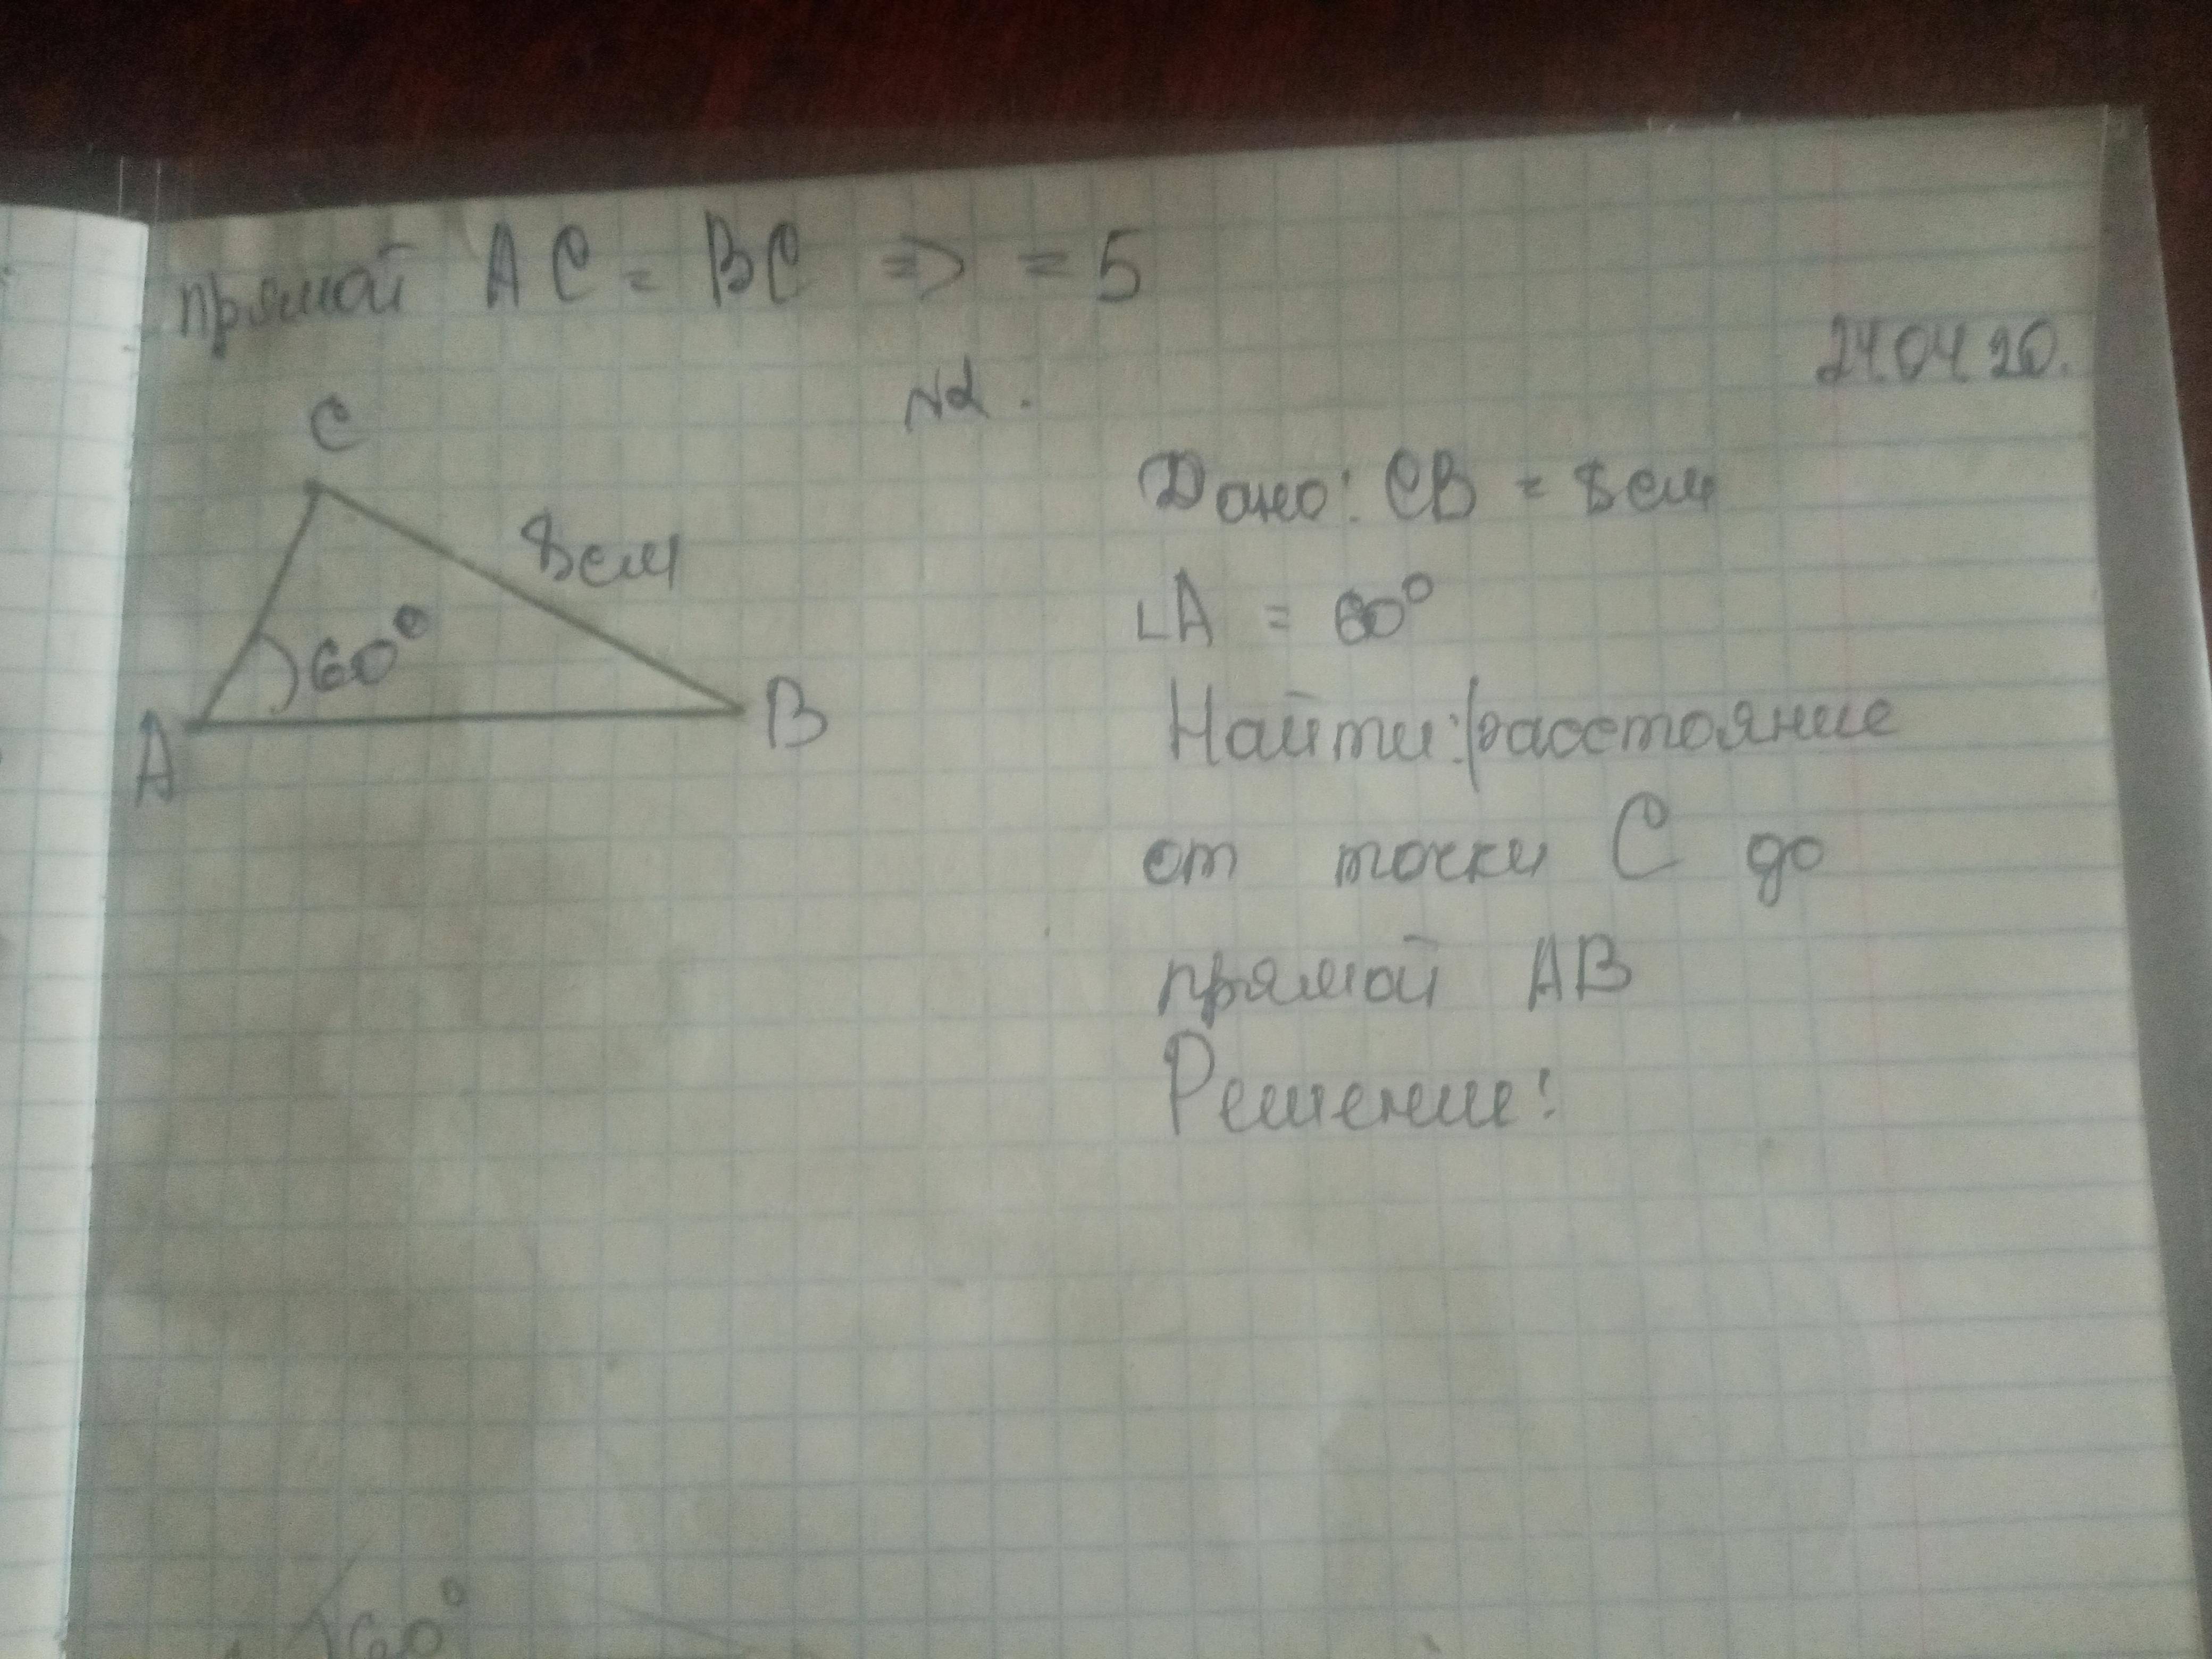 прямой AC = BC => = 5
24.04 20.
№2.
C
8см
60°
A
B
Дано: CB = 8см
∟A = 60°
Найти: расстояние
от точки C до
прямой AB
Решение:
60°